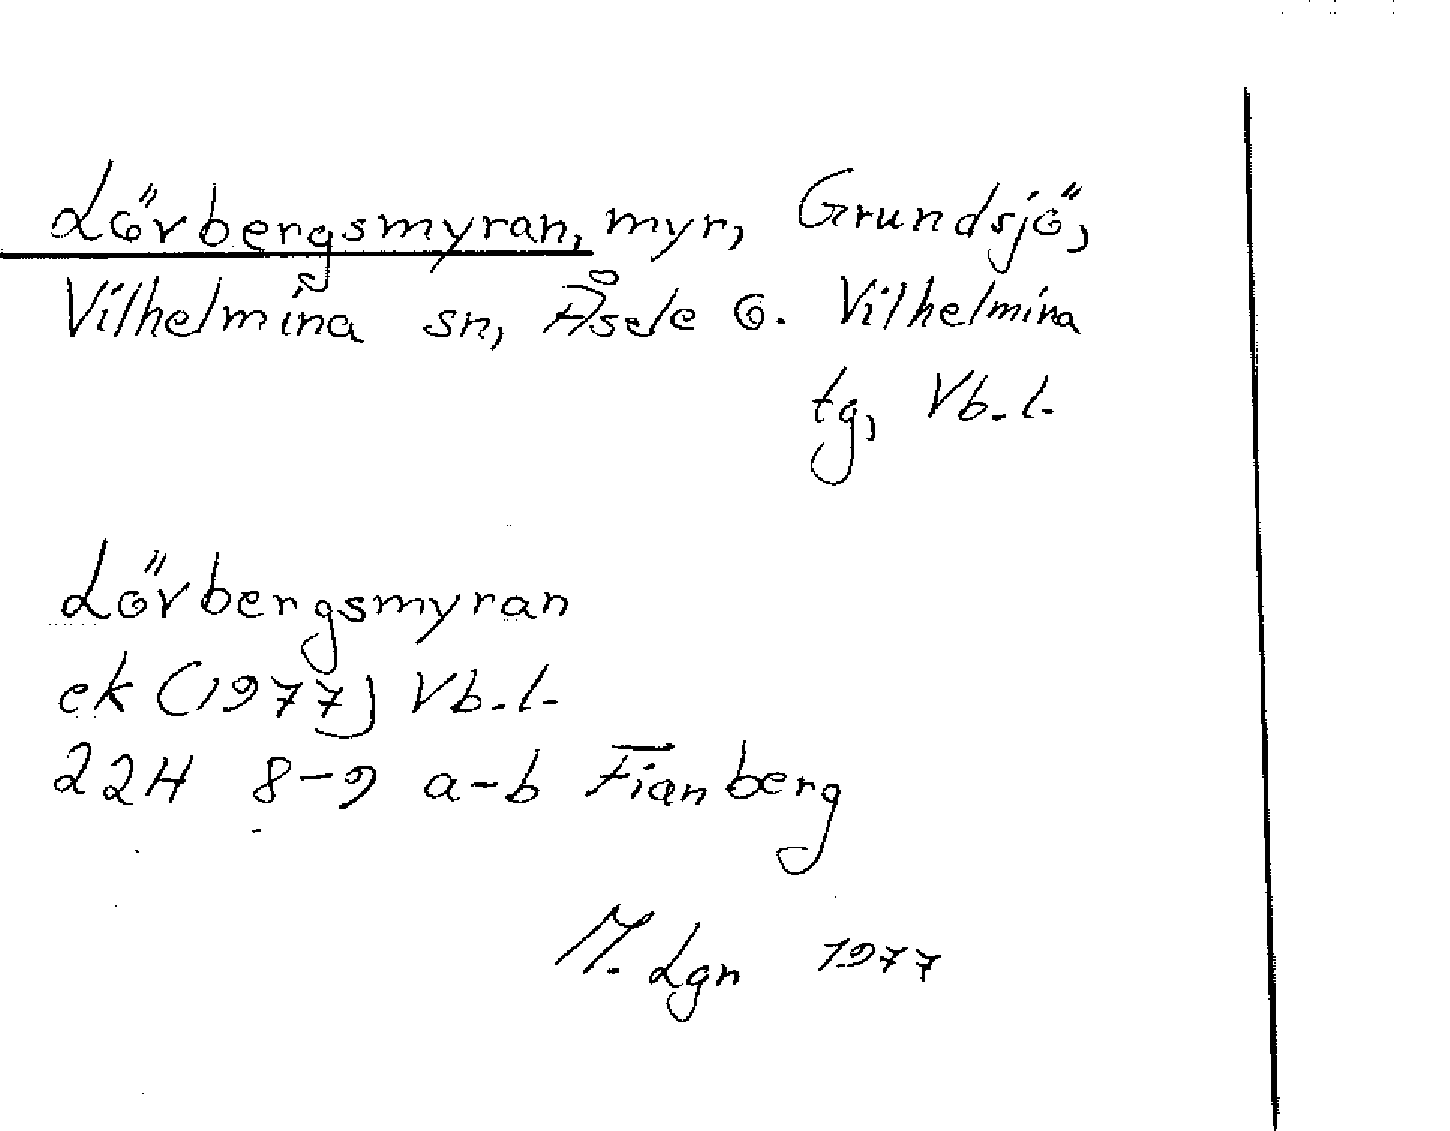 Lövbergsmyran, myr, Grundsjö,
Vilhelmina sn, Åsele o. Vilhelmina
tg, Vb. l.
Lövbergsmyran
ek (1977) Vb. l.
22H 8-9 a-b Fianberg
M. Lgn 1977